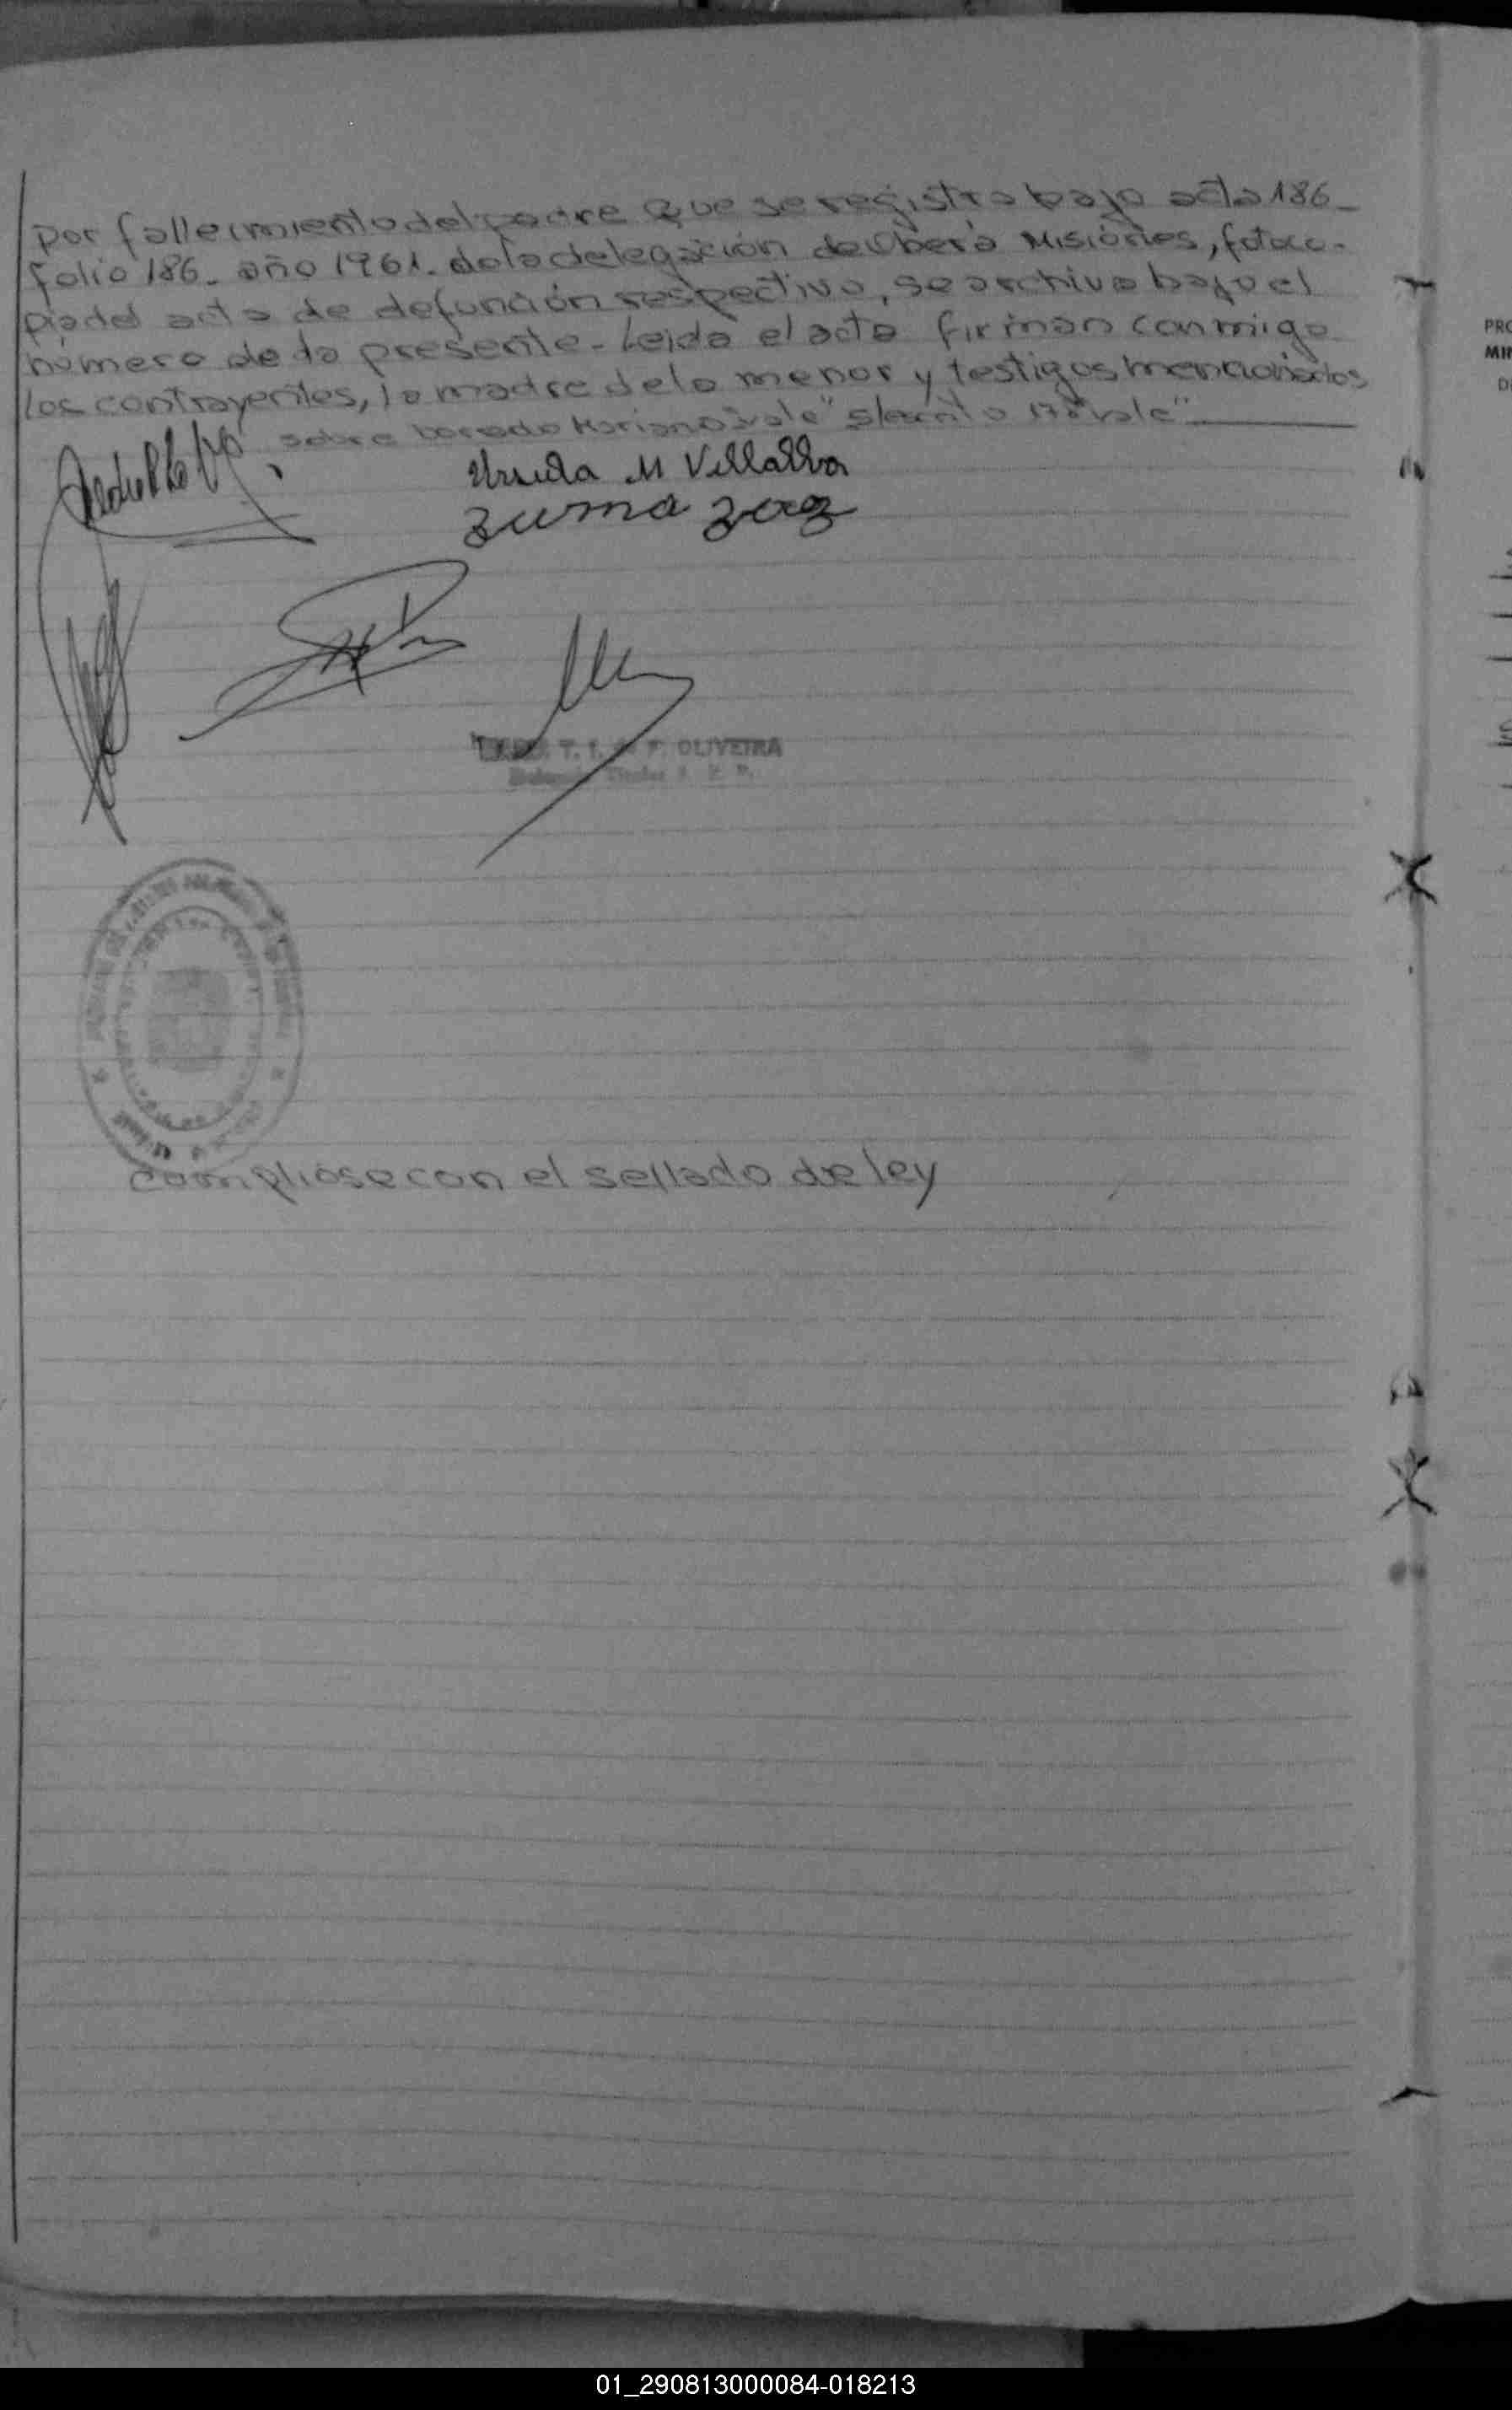 por fallecimiento del padre que se registra bajo acta 186_
folio 186_ año 1961. de la delegación de Oberá Misiones, fotoco-
pia del acta de defunción respectiva, se archiva bajo el
número de la presente - Leida el acta firman conmigo
los contrayentes, la madre de la menor y testigos mencionados
sobre borrado Mariano "vale"
Ursula M Villalba
Zuma
T. I. OLIVEIRA
Titular
compliose con el sellado de ley
PRO
MIN
D
01_290813000084-018213